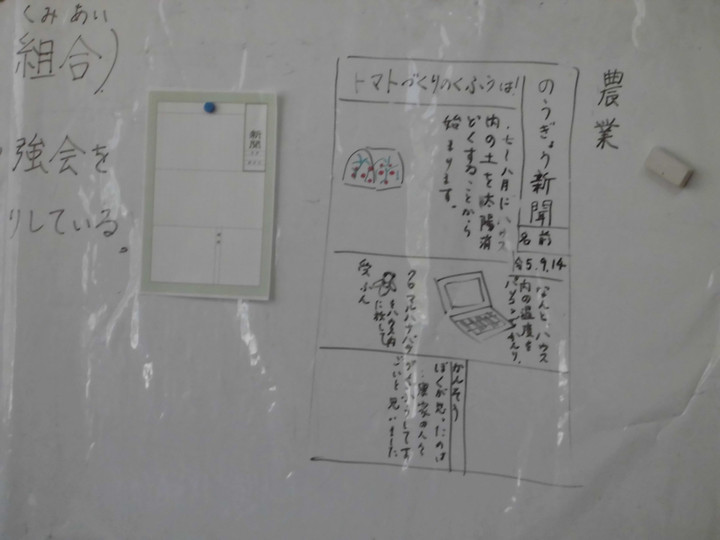 くみあい
組合)
強会を
りしている。
新聞
農業
のうぎょう新聞
名前
5.9.14
トマトづくりのくふうは!
七〜八月にハウス
内の土を太陽消
どくすることから
始まります。
なんと、ハウス
内の温度を
クロマルハナバチ
をハウス内
に放して
受ふん
かんそう
ぼくが思ったのは
農家の人々
ごいと思いました